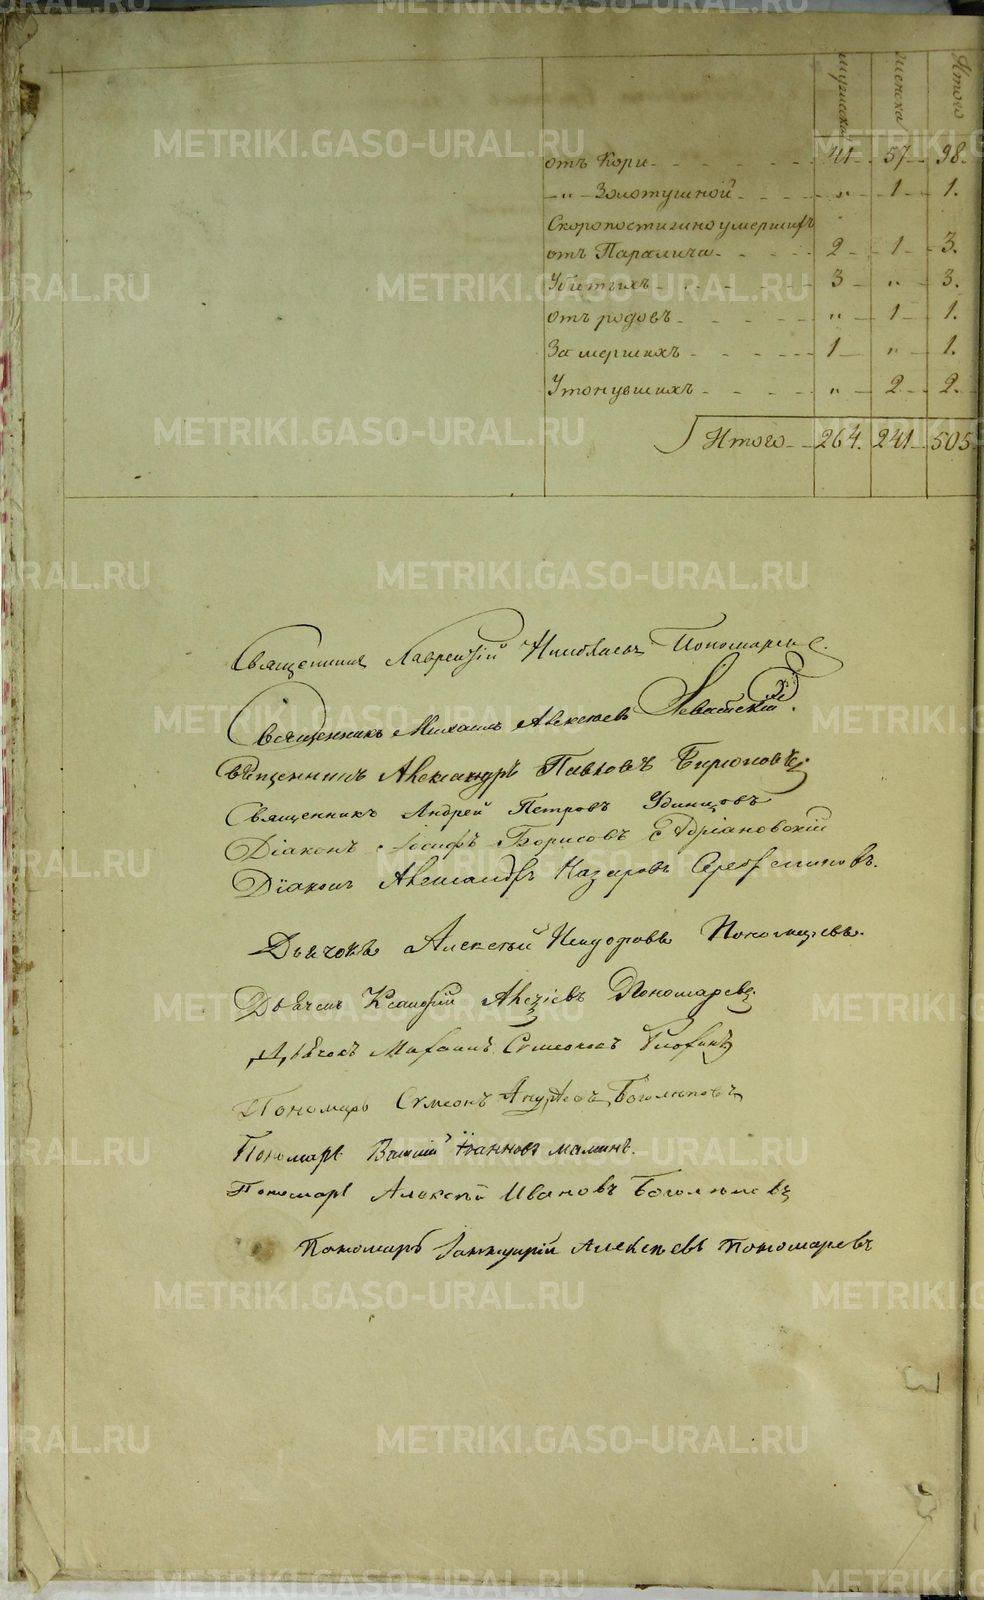 мужеска женска Итого
отъ Кори 41 57 98.
„ Золотушной „ 1 1.
Скоропостижно умершихъ
отъ Паралича 2 1 3.
Убитыхъ 3 „ 3.
отъ родовъ „ 1 1.
Замершихъ 1 „ 1.
Утонувшихъ „ 2 2.
Итого 264. 241 505
Священникъ Лаврентій Николаевъ Пономаревъ.
Священникъ Михаилъ Алексѣевъ Левитскій.
Священникъ Александръ Павловъ Бирюковъ
Священникъ Андрей Петровъ Удинцовъ
Діаконъ Іосифъ Борисовъ Адріановскій
Діаконъ Александръ Назаровъ Серебрениковъ.
Дьячокъ Алексѣй Пономаревъ.
Дьячекъ Пономаревъ.
Дьячокъ Симеоновъ
Пономарь Сѵмеонъ Андреевъ Боголѣповъ
Пономарь Василій Іоанновъ Малинъ.
Пономарь Алексѣй Ивановъ Боголѣповъ
Пономарь Алексѣевъ Пономаревъ
METRIKI.GASO-URAL.RU